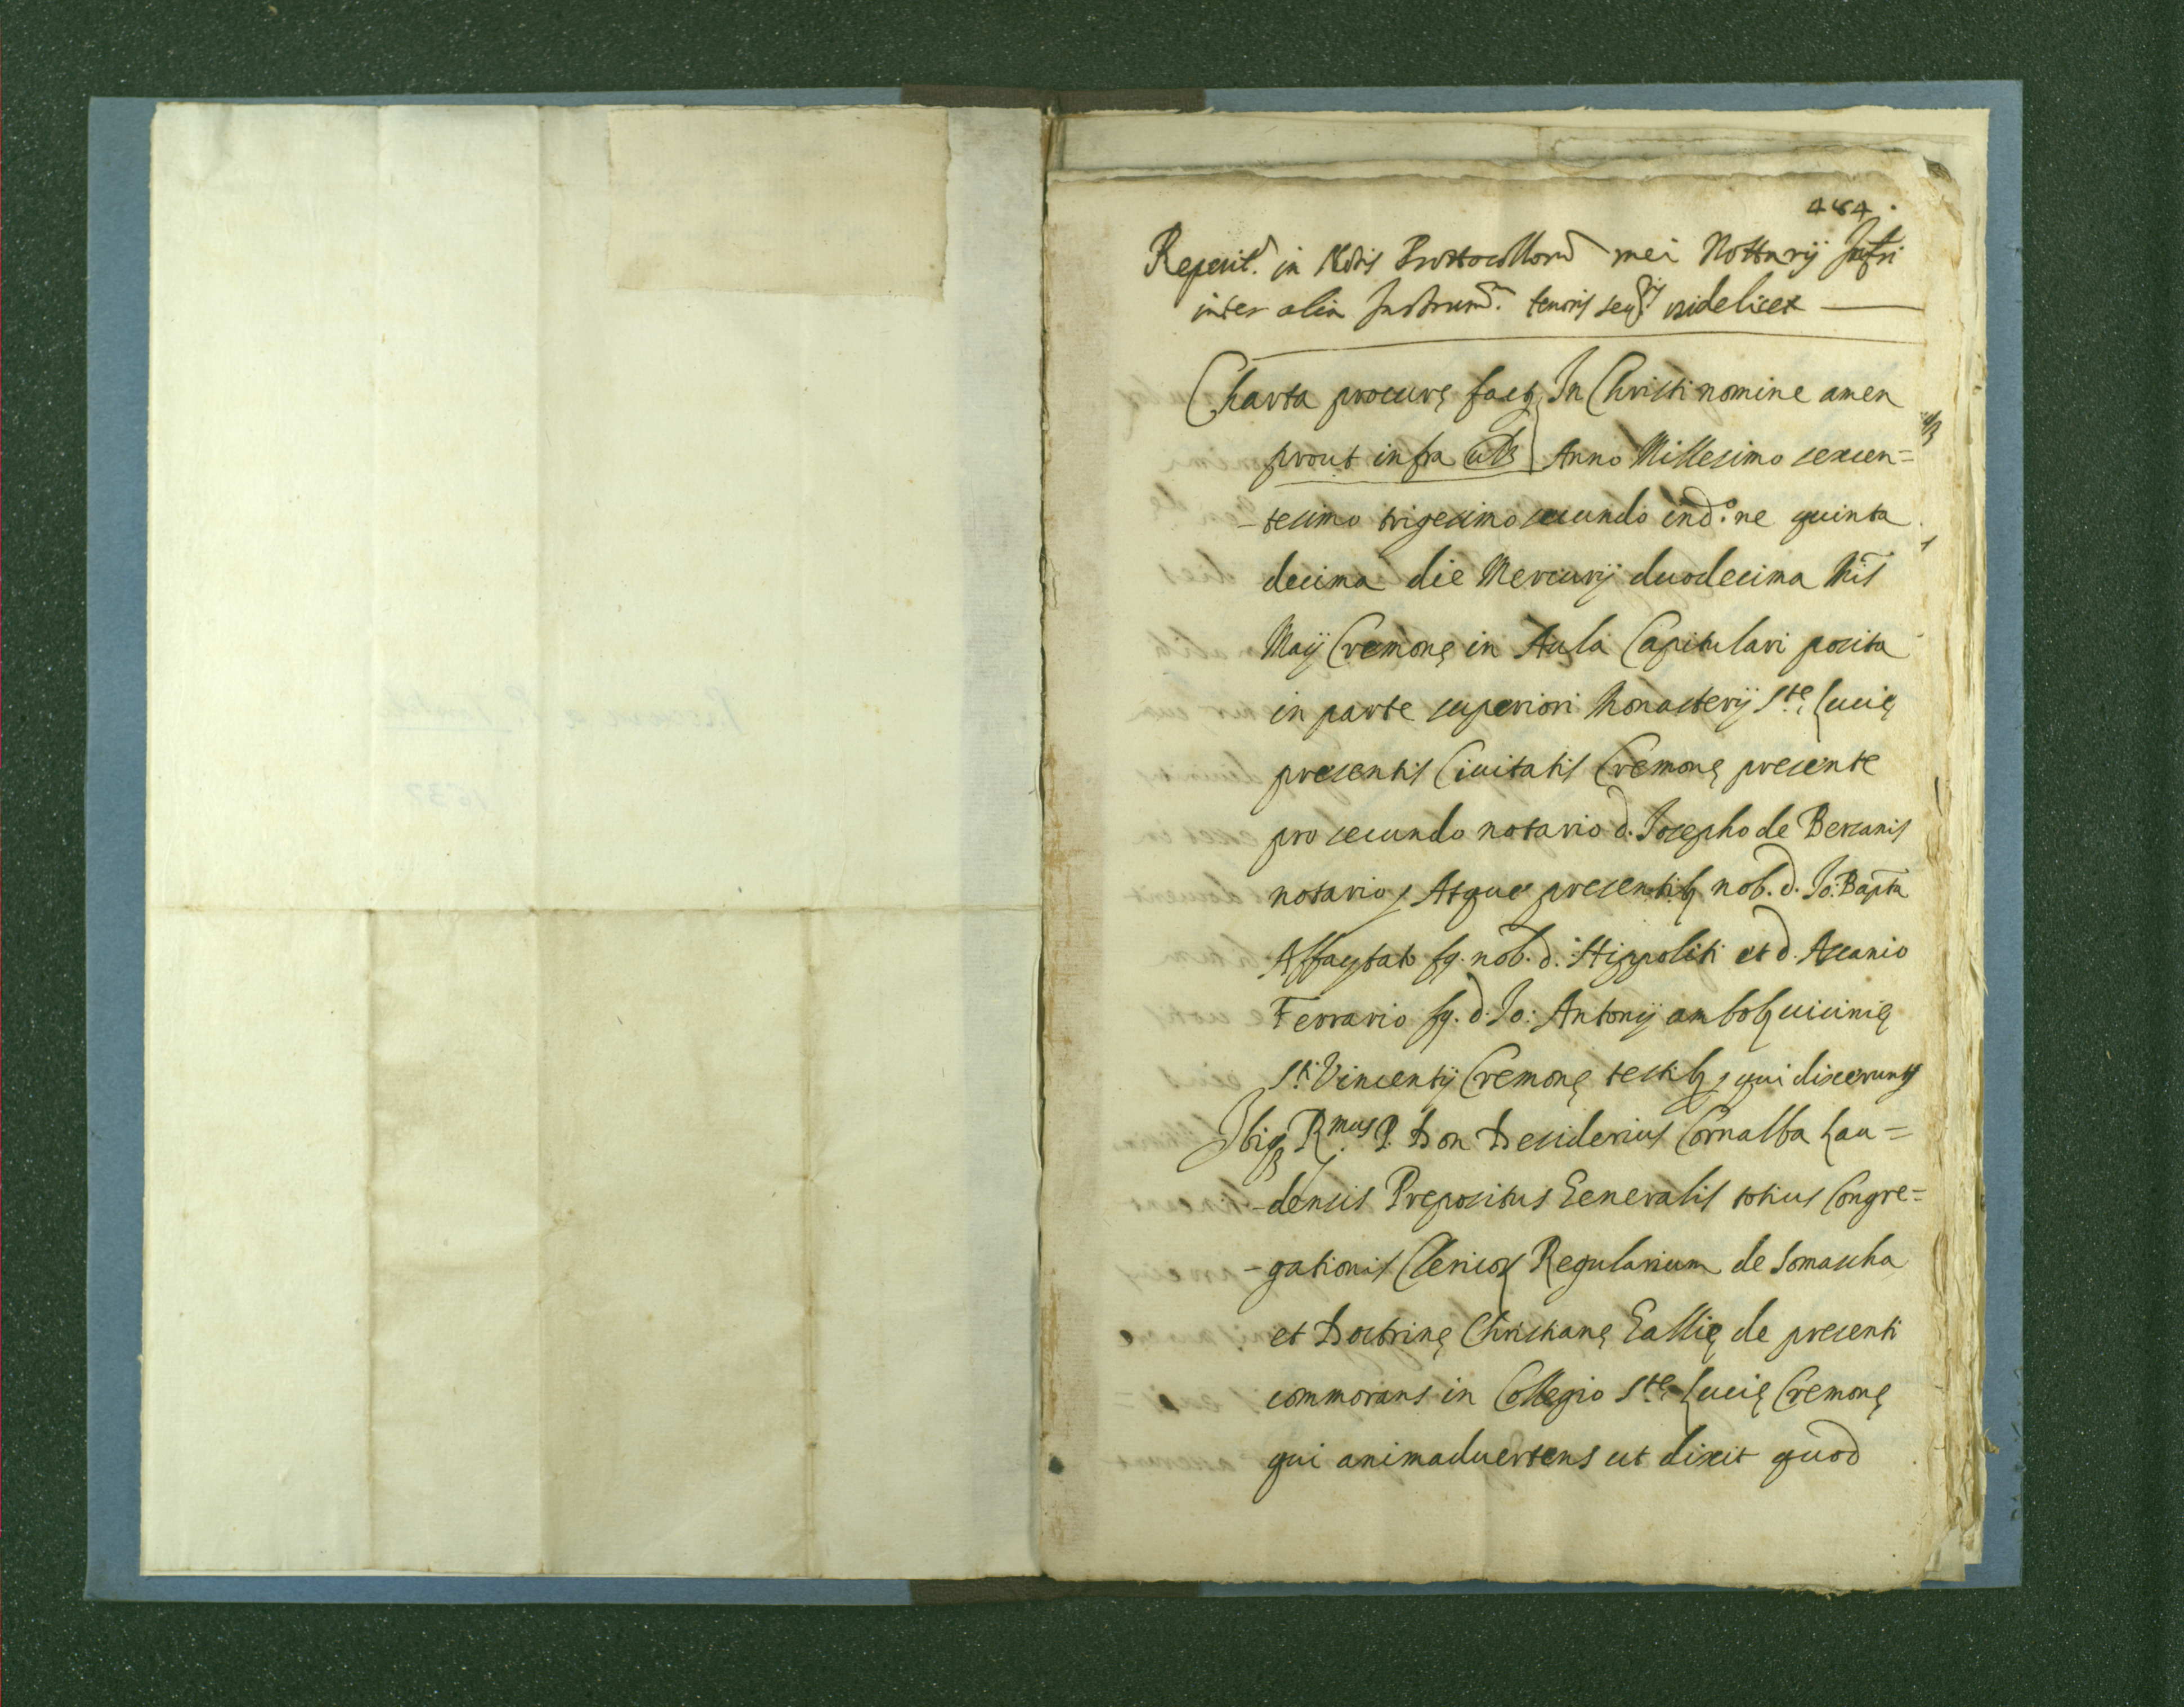 484.
Reperit. in Notis Prottocollor mei Nottarij Infri
inter alia Instrum. tenoris seq. videlicet —
Charta procurę factę In Christi nomine amen
prout infra Anno Millesimo sexcen=
-tesimo trigesimo secundo ind.ne quinta
decima die Mercurij duodecima Mis
Maij Cremonę in Aula Capitulari posita
in parte superiori Monasterij S.tę Lucię
presentis Civitatis Cremonę presente
pro secundo notario d. Josepho de Bercanis
notario, Atque presentibq nob. d. Jo: Bapta
Affaytato fq. nob. d. Hippoliti et d. Ascanio
Ferrario fq. d. Jo: Antonij ambobq vicinię
S.ti Vincentij Cremonę testibq, qui dixerunt
Ibiq R.mus P. Don Desiderius Cornalba Lau=
-densis Prepositus Generalis totius Congre=
-gationis Clericor Regularium de Somascha
et Doctrinę Christianę Gallię de presenti
commorans in Collegio S.tę Lucię Cremonę
qui animadvertens ut dixit quod